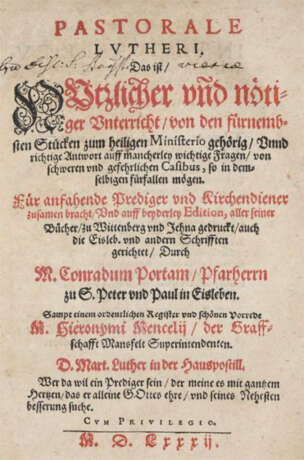 PASTORALE
LVTHERI,
Das ist/
Nützlicher vnd nöti-
ger Vnterricht/ von den fürnemb-
sten Stücken zum heiligen Ministerio gehörig/ Vnnd
richtige Antwort auff mancherley wichtige Fragen/ von
schweren vnd gefehrlichen Casibus, so in dem-
selbigen fürfallen mögen.
Für anfahende Prediger vnd Kirchendiener
zusamen bracht/ Vnd auff beyderley Edition, aller seiner
Bücher/ zu Wittenberg vnd Jehna gedruckt/ auch
die Eisleb. vnd andern Schrifften
gerichtet/ Durch
M. Conradum Portam/ Pfarherrn
zu S. Peter vnd Paul in Eisleben.
Sampt einem ordentlichen Register vnd schönen Vorrede
M. Hieronymi Mencelij/ der Graff-
schafft Mansfelt Superintendenten.
D. Mart. Luther in der Hauspostill.
Wer da wil ein Prediger sein/ der meine es mit gantzem
Hertzen/ das er alleine Gottes ehre/ vnd seines Nehesten
besserung suche.
CVM PRIVILEGIO.
M. D. Lxxxij.